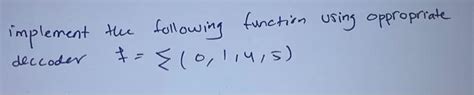 implement the following function using oppropriate
deccoder f = Σ(0,1,4,5)